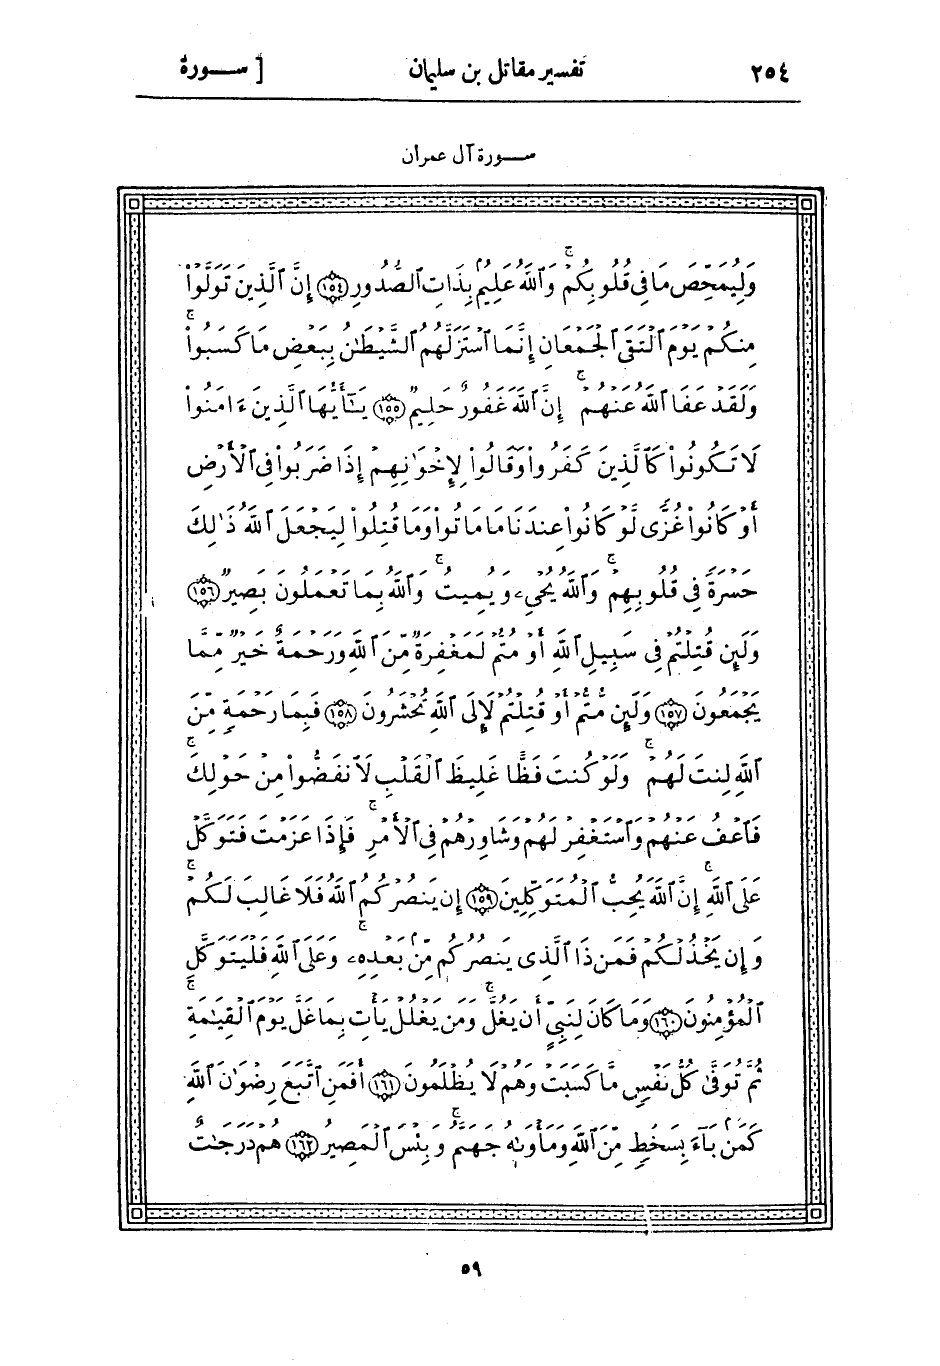 ٢٥٤ تفسير مقاتل بن سليمان [ ســورة
ســورة آل عمران
وَلِيُمَحِّصَ مَا فِى قُلُوبِكُمْ ۚ وَٱللَّهُ عَلِيمٌۢ بِذَاتِ ٱلصُّدُورِ ﴿١٥٤﴾ إِنَّ ٱلَّذِينَ تَوَلَّوْا۟
مِنكُمْ يَوْمَ ٱلْتَقَى ٱلْجَمْعَانِ إِنَّمَا ٱسْتَزَلَّهُمُ ٱلشَّيْطَٰنُ بِبَعْضِ مَا كَسَبُوا۟ ۖ
وَلَقَدْ عَفَا ٱللَّهُ عَنْهُمْ ۗ إِنَّ ٱللَّهَ غَفُورٌ حَلِيمٌ ﴿١٥٥﴾ يَٰٓأَيُّهَا ٱلَّذِينَ ءَامَنُوا۟
لَا تَكُونُوا۟ كَٱلَّذِينَ كَفَرُوا۟ وَقَالُوا۟ لِإِخْوَٰنِهِمْ إِذَا ضَرَبُوا۟ فِى ٱلْأَرْضِ
أَوْ كَانُوا۟ غُزًّى لَّوْ كَانُوا۟ عِندَنَا مَا مَاتُوا۟ وَمَا قُتِلُوا۟ لِيَجْعَلَ ٱللَّهُ ذَٰلِكَ
حَسْرَةً فِى قُلُوبِهِمْ ۗ وَٱللَّهُ يُحْىِۦ وَيُمِيتُ ۗ وَٱللَّهُ بِمَا تَعْمَلُونَ بَصِيرٌ ﴿١٥٦﴾
وَلَئِن قُتِلْتُمْ فِى سَبِيلِ ٱللَّهِ أَوْ مُتُّمْ لَمَغْفِرَةٌ مِّنَ ٱللَّهِ وَرَحْمَةٌ خَيْرٌ مِّمَّا
يَجْمَعُونَ ﴿١٥٧﴾ وَلَئِن مُّتُّمْ أَوْ قُتِلْتُمْ لَإِلَى ٱللَّهِ تُحْشَرُونَ ﴿١٥٨﴾ فَبِمَا رَحْمَةٍ مِّنَ
ٱللَّهِ لِنتَ لَهُمْ ۖ وَلَوْ كُنتَ فَظًّا غَلِيظَ ٱلْقَلْبِ لَٱنفَضُّوا۟ مِنْ حَوْلِكَ ۖ
فَٱعْفُ عَنْهُمْ وَٱسْتَغْفِرْ لَهُمْ وَشَاوِرْهُمْ فِى ٱلْأَمْرِ ۖ فَإِذَا عَزَمْتَ فَتَوَكَّلْ
عَلَى ٱللَّهِ ۚ إِنَّ ٱللَّهَ يُحِبُّ ٱلْمُتَوَكِّلِينَ ﴿١٥٩﴾ إِن يَنصُرْكُمُ ٱللَّهُ فَلَا غَالِبَ لَكُمْ ۖ
وَإِن يَخْذُلْكُمْ فَمَن ذَا ٱلَّذِى يَنصُرُكُم مِّنۢ بَعْدِهِۦ ۗ وَعَلَى ٱللَّهِ فَلْيَتَوَكَّلِ
ٱلْمُؤْمِنُونَ ﴿١٦٠﴾ وَمَا كَانَ لِنَبِىٍّ أَن يَغُلَّ ۚ وَمَن يَغْلُلْ يَأْتِ بِمَا غَلَّ يَوْمَ ٱلْقِيَٰمَةِ ۚ
ثُمَّ تُوَفَّىٰ كُلُّ نَفْسٍ مَّا كَسَبَتْ وَهُمْ لَا يُظْلَمُونَ ﴿١٦١﴾ أَفَمَنِ ٱتَّبَعَ رِضْوَٰنَ ٱللَّهِ
كَمَنۢ بَآءَ بِسَخَطٍ مِّنَ ٱللَّهِ وَمَأْوَىٰهُ جَهَنَّمُ ۚ وَبِئْسَ ٱلْمَصِيرُ ﴿١٦٢﴾ هُمْ دَرَجَٰتٌ
٥٩